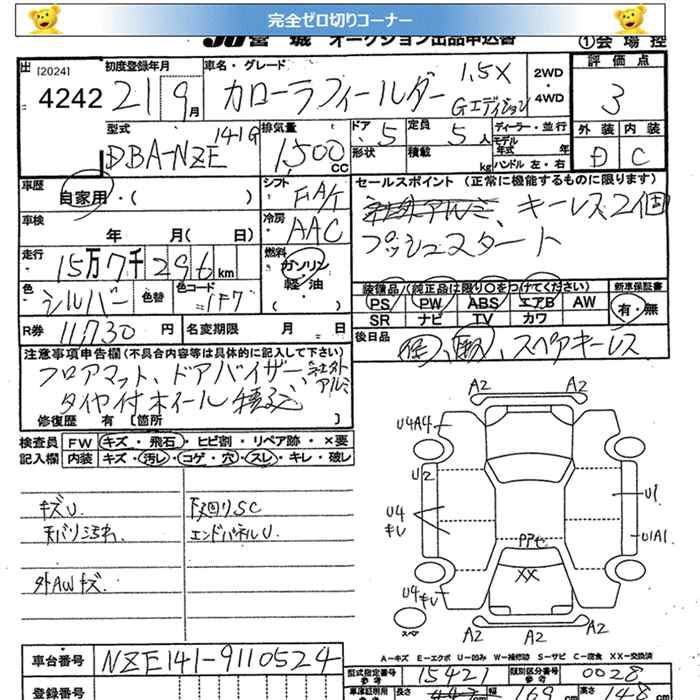 完全ゼロ切りコーナー
JU宮城 オークション出品申込書 ①会場控
出 [2024] 初度登録年月 車名・グレード 2WD・4WD 評価点
4242 21 9月 カローラフィールダー 1.5X Gエディション 3
型式 DBA-NZE141G 排気量 1500 CC ドア 5 定員 5人 ディーラー・並行 外装 内装
形状 積載 kg モデル年式 年 ハンドル 左・右 D C
車歴 自家用・( ) シフト FAT セールスポイント (正常に機能するものに限ります)
車検 年 月( 日) 冷房 AAC 社外アルミ、キーレス2個
プッシュスタート
走行 15万7千296km 燃料 ガソリン・軽油・( )
装備品/(純正品に限り○をつけてください) 新車保証書
色 シルバー 色替 色コード 1F7 PS PW ABS エアB AW 有・無
SR ナビ TV カワ
R券 11,730円 名変期限 月 日 後日品 保、取説、スペアキーレス
注意事項申告欄(不具合内容等は具体的に記入して下さい)
フロアマット、ドアバイザー、社外アルミ
タイヤ付ホイール積込
修復歴 有 [箇所 ]
検査員 FW キズ・飛石・ヒビ割・リペア跡・×要
記入欄 内装 キズ・汚レ・コゲ・穴・スレ・キレ・破レ
キズU. 下回りSC
天バリ汚れ. エンドパネルU.
外AWキズ.
A2 A2
U4A4
U2 U1
U4キレ U1A1
PPセ
XX
U4キレ
スペア A2 A2 A2
A-キズ E-エクボ U-凹み W-補修跡 S-サビ C-腐食 XX-交換済
車台番号 NZE141-9110524
型式指定番号 参考 15421 類別区分番号 参考 0028
登録番号 車庫証明用 参考 長さ 442 幅 169 cm 高さ 148 cm